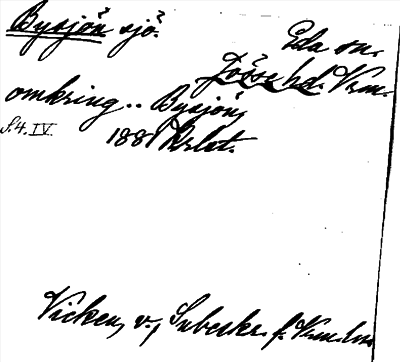 Bysjön sjö.
Eda sn.
Jösse hd. Vrm.
omkring .. Bysjön,
S.4.IV.
1881 Krlat.
Vicken, v., Inbeskr. f. Vrm. län